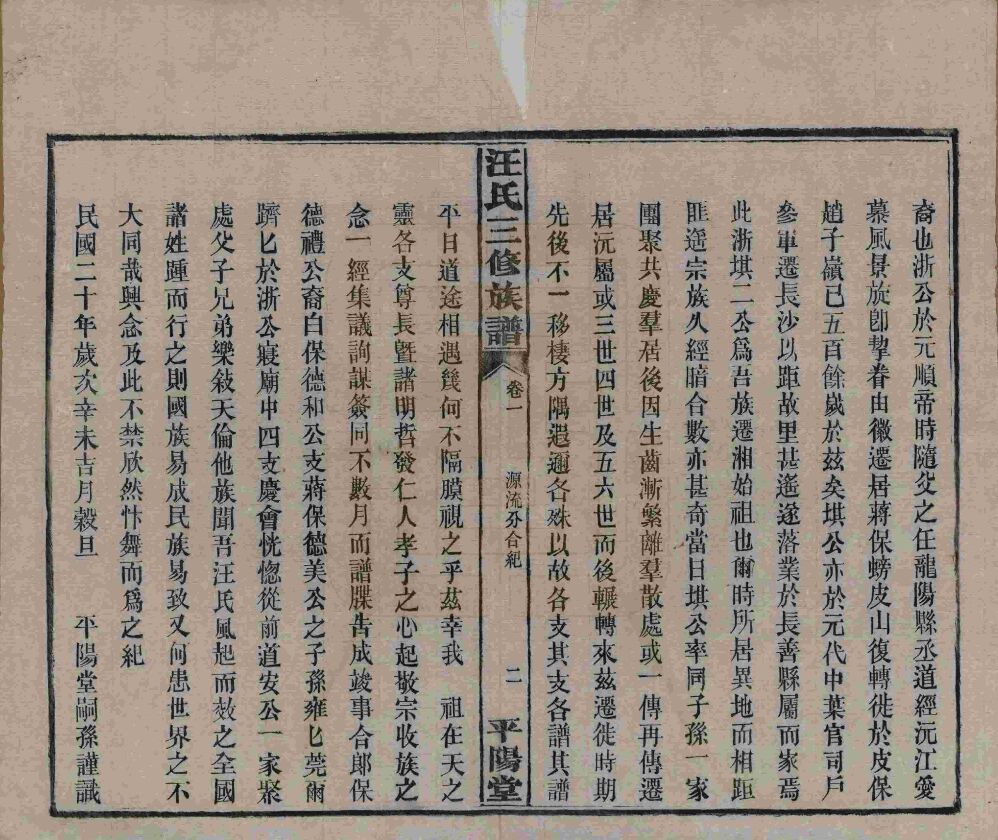 裔也浙公於元順帝時隨父之任龍陽縣丞道經沅江愛
慕風景旋卽挈眷由徽遷居蔣保螃皮山復轉徙於皮保
趙子嶺已五百餘歲於玆矣堪公亦於元代中葉官司戶
參軍遷長沙以距故里甚遙遂落業於長善縣屬而家焉
此浙堪二公爲吾族遷湘始祖也爾時所居異地而相距
匪遙宗族久經暗合數亦甚奇當日堪公率同子孫一家
團聚共慶羣居後因生齒漸繁離羣散處或一傳再傳遷
居沅屬或三世四世及五六世而後輾轉來玆遷徙時期
先後不一移棲方隅遐邇各殊以故各支其支各譜其譜
汪氏三修族譜
卷一
源流分合紀
二
平陽堂
平日道途相遇幾何不隔膜視之乎玆幸我 祖在天之
靈各支尊長曁諸明哲發仁人孝子之心起敬宗收族之
念一經集議詢謀簽同不數月而譜牒告成竣事合鄖保
德禮公裔白保德和公支蔣保德美公之子孫雍匕莞爾
躋匕於浙公寢廟中四支慶會恍惚從前道安公一家聚
處父子兄弟樂敍天倫他族聞吾汪氏風起而效之全國
諸姓踵而行之則國族易成民族易致又何患世界之不
大同哉興念及此不禁欣然忭舞而爲之紀
民國二十年歲次辛未吉月穀旦 平陽堂嗣孫謹識